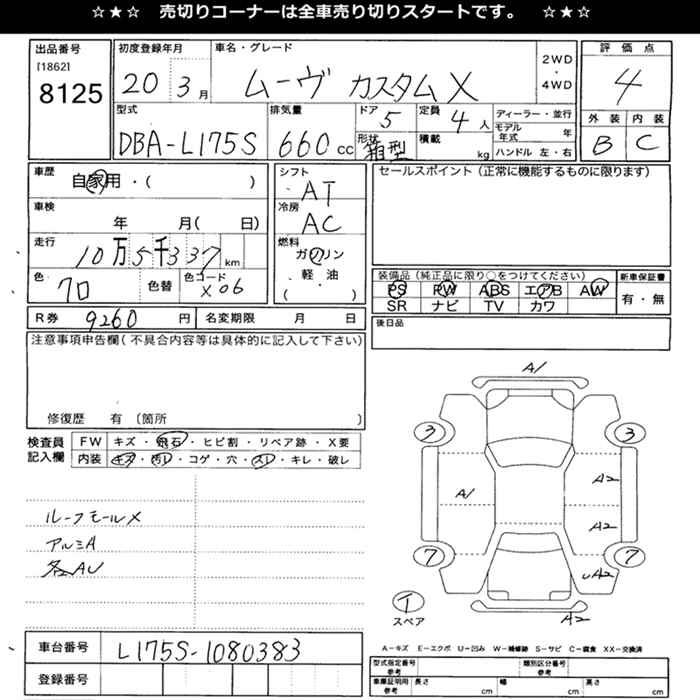 ☆★☆ 売切りコーナーは全車売り切りスタートです。 ☆★☆
出品番号
[1862]
8125
初度登録年月
20 3 月
車名・グレード
ムーヴ カスタムX
2WD
・
4WD
評価点
4
型式
DBA-L175S
排気量
660 cc
ドア
5
形状
箱型
定員
4 人
積載
kg
ディーラー・並行
モデル年式 年
ハンドル 左・右
外装 内装
B C
車歴
自家用・( )
車検
年 月( 日)
走行
10万5千337 km
色
クロ
色替
色コード
X06
シフト
AT
冷房
AC
燃料
ガソリン
軽・油
( )
セールスポイント(正常に機能するものに限ります)
装備品(純正品に限り○をつけてください)
PS PW ABS エアB AW
SR ナビ TV カワ
新車保証書
有・無
R券 9260 円
名変期限 月 日
後日品
注意事項申告欄(不具合内容等は具体的に記入して下さい)
修復歴 有 〔箇所 〕
検査員
記入欄
FW キズ・飛石・ヒビ割・リペア跡・X要
内装 キズ・汚レ・コゲ・穴・スレ・キレ・破レ
ルーフモールX
アルミA
各AU
A1
3 3
A1
A2
A2
7 7
A2
T
スペア
A2
A-キズ E-エクボ U-凹み W-補修跡 S-サビ C-腐食 XX-交換済
車台番号 L175S-1080383
登録番号
型式指定番号
参考
類別区分番号
参考
車庫証明用
参考
長さ cm
幅 cm
高さ cm